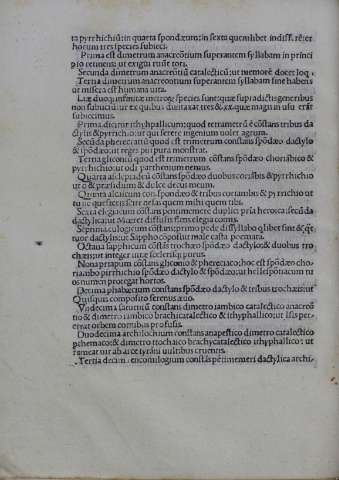 ta pyrrhichiũ:in quarta spondæum:in sexta quemlibet indiffẽrẽter
horum tres species subieci.
Prima est dimetrum anacreõtium superantem syllabam in princi
pio retinens: ut exigui
Secunda dimetrum anacreõtiũ catalecticũ:ut memorẽ docet loq
Tertia dimetrum anacreõtium superantem syllabam sine habens
ut misera est humana uita.
duo: infinitæ metrorũ species sunt: quæ supradictis generibus
non subiiciũtur ex quibus duntaxat tres & xx. quæ magis in usu erãt
subiecimus.
Prima dicitur ithyphallicum: quod tetrametrũ ẽ cõstans tribus da
ctylis & pyrrichio: ut qui serere ingenium uolet agrum.
Secũda pherecratiũ quod est trimetrum constans spõdæo dactylo
& spõdæo: ut reges pituira monstrat.
Terna gliconiũ quod est trimetrum cõstans spõdæo choriãbico &
pyrrhichio: ut odi parthenium nemus.
Quarta asclepiadeũ cõstans spõdæo duobus coriãbis & pyrrhichio
ut o & præsidium & dulce decus meum.
Quinta alcaicum con. spondæo & tribus coriambis & pyrrichio ut
tu ne quæsieris scire nefas quem mihi quem tibi.
Sexta elegiacum cõstans pentimemere duplici prĩa heroica secũda
dactylica: ut Mæret diffusis flens elegia comis.
Septima eulogicum cõstans: primo pede dissyllabo qlibet sint
tuor dactylis: ut Sappho cõposuit male casta poemata.
Octaua saphicum cõstãs trochæo spõdæo dactylo & duobus tro
chæis: ut integer uitæ scelerisq; purus.
Nona priapum cõstans gliconio & phereciaco: hoc est spõdæo cho
riambo pirrhichio spõdæo dactylo & spõdæo: ut hellespõtiacum tu
os numen protegat hortos.
Decima phaleucum constans spõdæo dactylo & tribus trochæis: ut
Quisquis composito serenus æuo.
Vndecima saturniũ constans dimetro iambico catalectico anacreõ
tio & dimetro iambico brachicatalectico & ithyphallico: ut Isis per
errat orbem cornibus profusis.
Duodecima archilochium constans anapestico dimetro catalectico
& dimetro trochaico brachycatalectico ithyphallico: ut
rumcat uir ab arce tyrãni uultibus cruentis.
Tertia decim. encomilogicum constãs pẽtimemeri dactylica archi